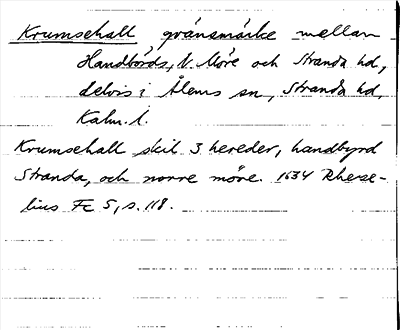 Krumsehall gränsmärke mellan
Handbörds, N. Möre och Stranda hd,
delvis i Ålems sn, Stranda hd,
Kalm. l.
Krumsehall skil 3 hereder, handbyrd
Stranda, och norre möre. 1634 Rheze-
lius Fc 5, s. 118.